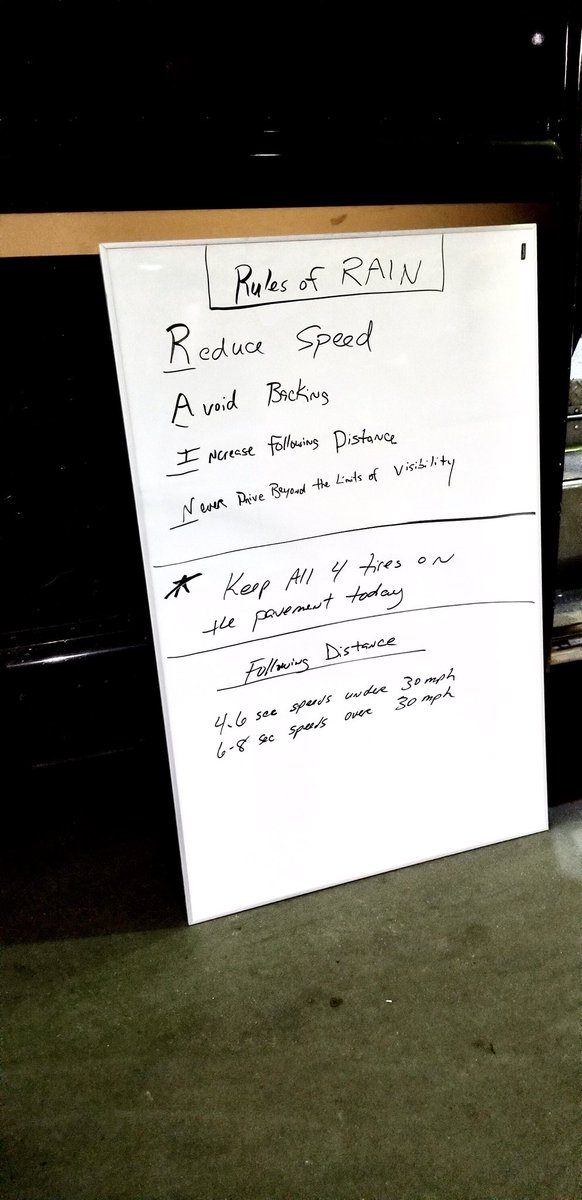 Rules of RAIN
Reduce Speed
Avoid Backing
Increase Following Distance
Never Drive Beyond the Limits of Visibility
* Keep All 4 tires on
the pavement today
Following Distance
4-6 sec speeds under 30 mph
6-8 sec speeds over 30 mph